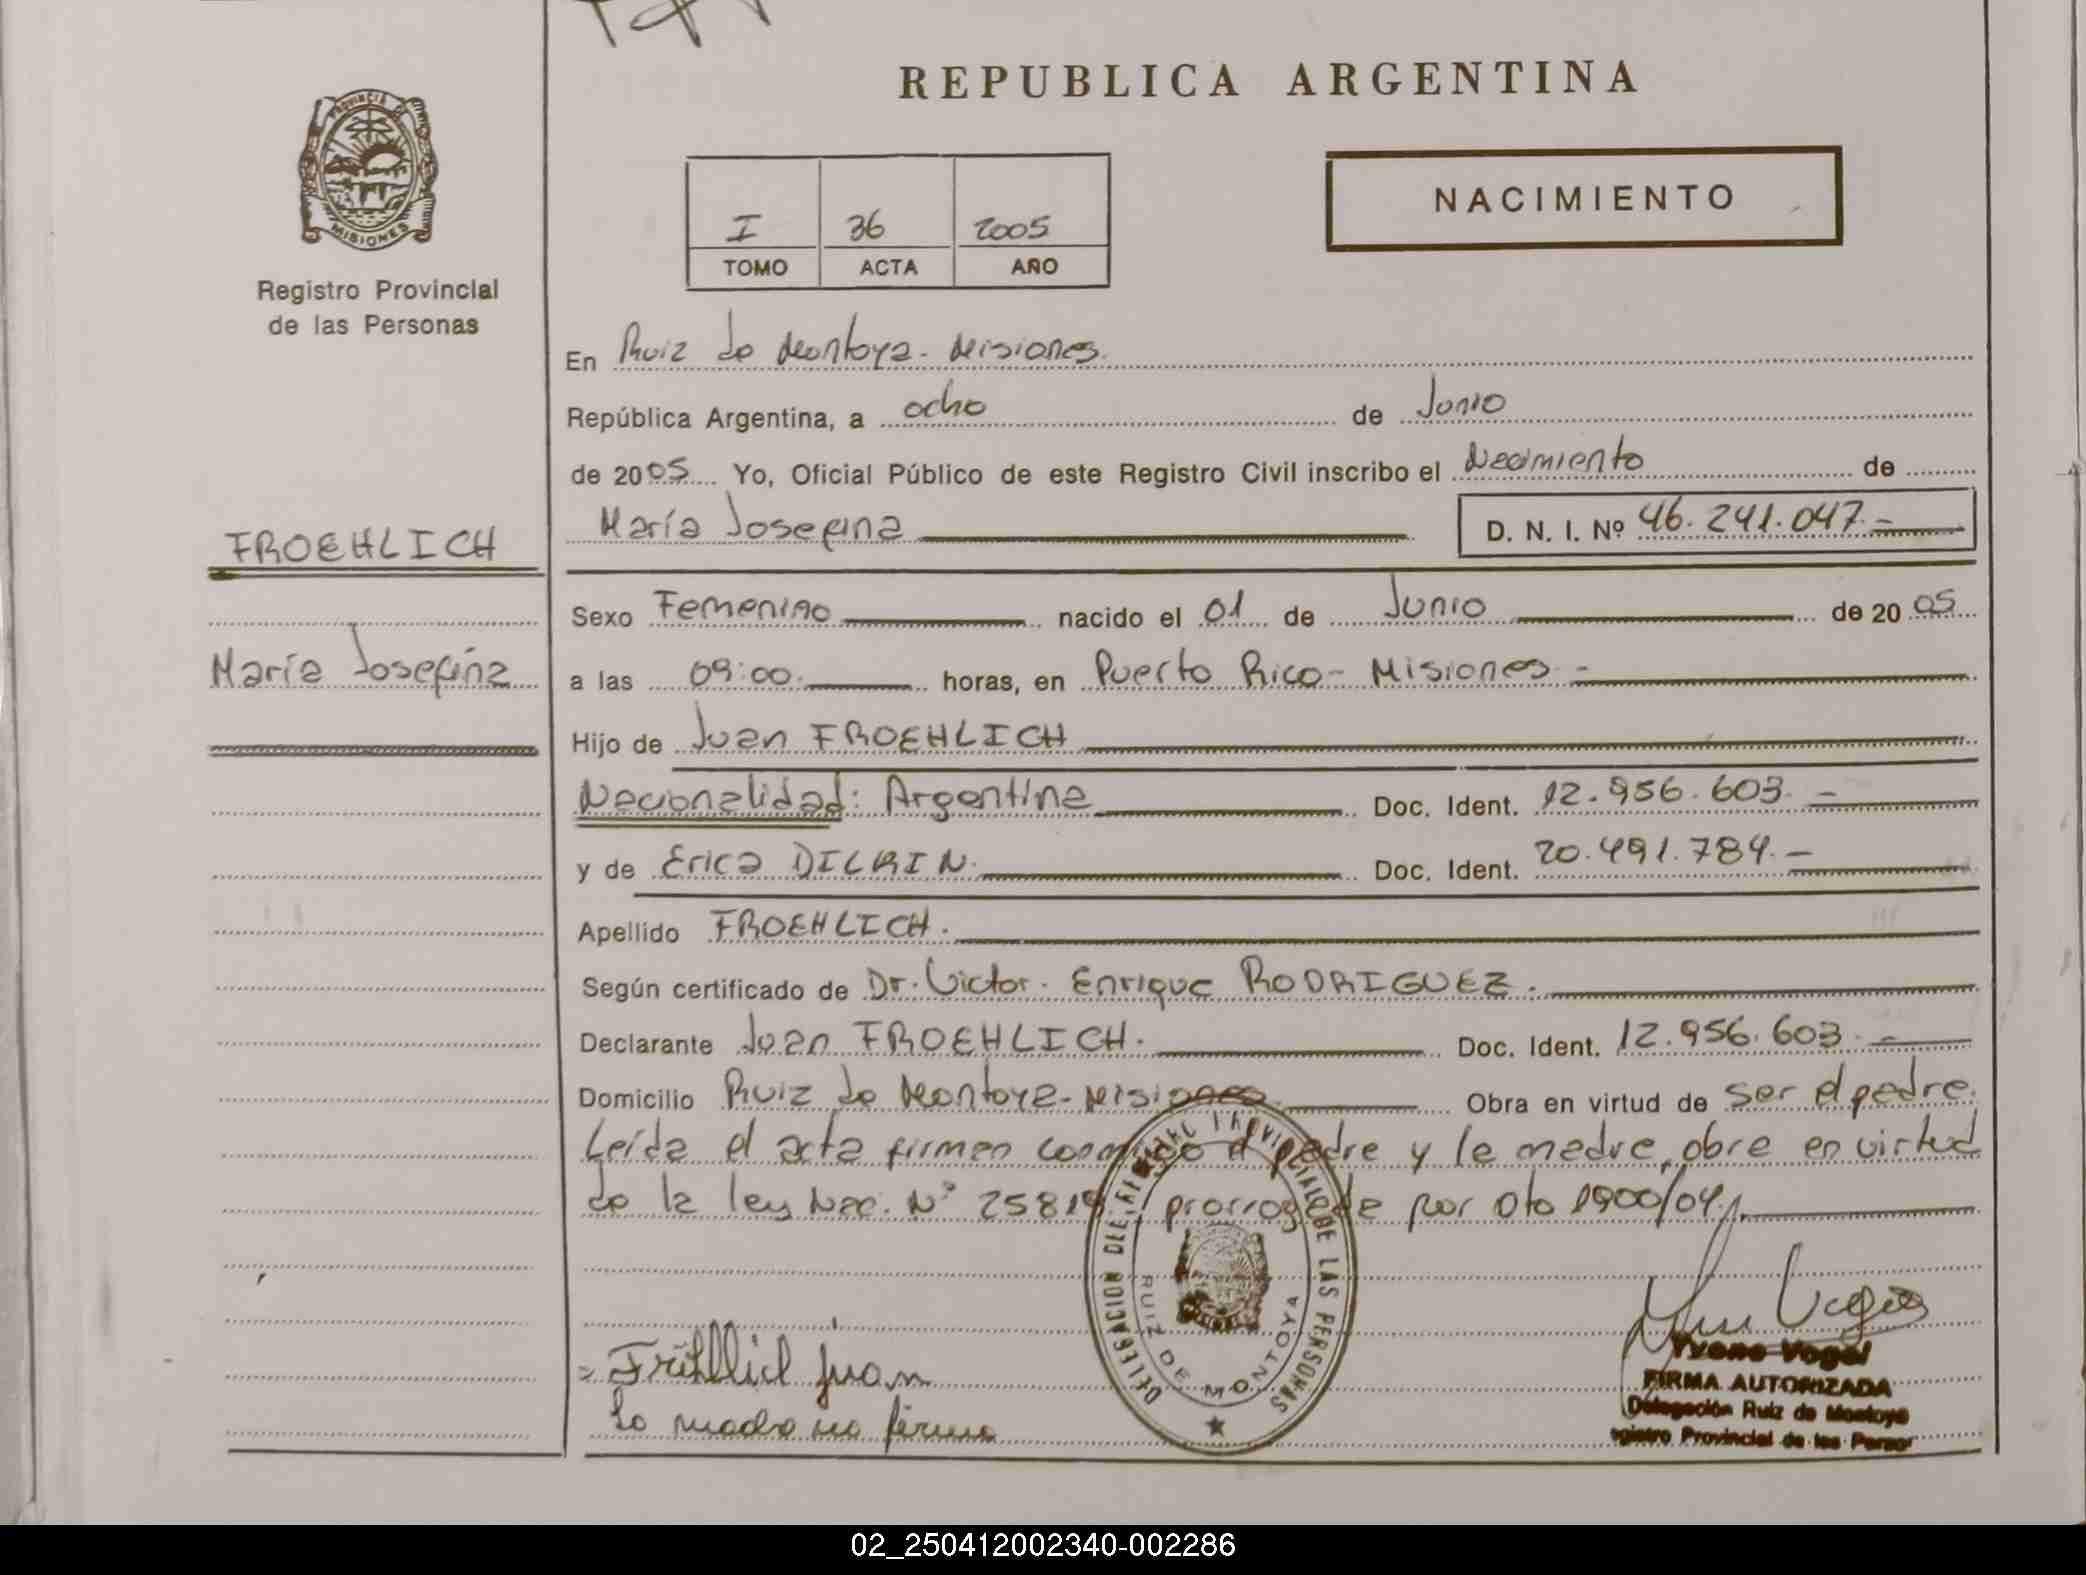 REPUBLICA ARGENTINA
PROVINCIA DE MISIONES
Registro Provincial
de las Personas
I 36 2005
TOMO ACTA AÑO
NACIMIENTO
En Ruiz de Montoya - Misiones.
República Argentina, a ocho de Junio
de 2005 Yo, Oficial Público de este Registro Civil inscribo el Nacimiento de
María Josefina D. N. I. Nº 46.241.047.-
FROEHLICH
María Josefina
Sexo Femenino nacido el 01 de Junio de 2005
a las 09:00. horas, en Puerto Rico - Misiones -
Hijo de Juan FROEHLICH
Nacionalidad: Argentina Doc. Ident. 12.956.603.-
y de Erica Doc. Ident. 20.491.784.-
Apellido FROEHLICH.
Según certificado de Dr. Victor. Enrique RODRIGUEZ.
Declarante Juan FROEHLICH. Doc. Ident. 12.956.603.-
Domicilio Ruiz de Montoya - Misiones Obra en virtud de ser el padre.
Leída el acta firman conmigo el padre y la madre, obra en virtud
de la ley Nac. N° 25819 prorrogada por Dto 1900/04.
DELEGACION DEL REGISTRO PROVINCIAL DE LAS PERSONAS
RUIZ DE MONTOYA
Fröhllich juan
La madre no firma
Yvone Vogel
FIRMA AUTORIZADA
Delegación Ruiz de Montoya
gistro Provincial de las Person
02_250412002340-002286